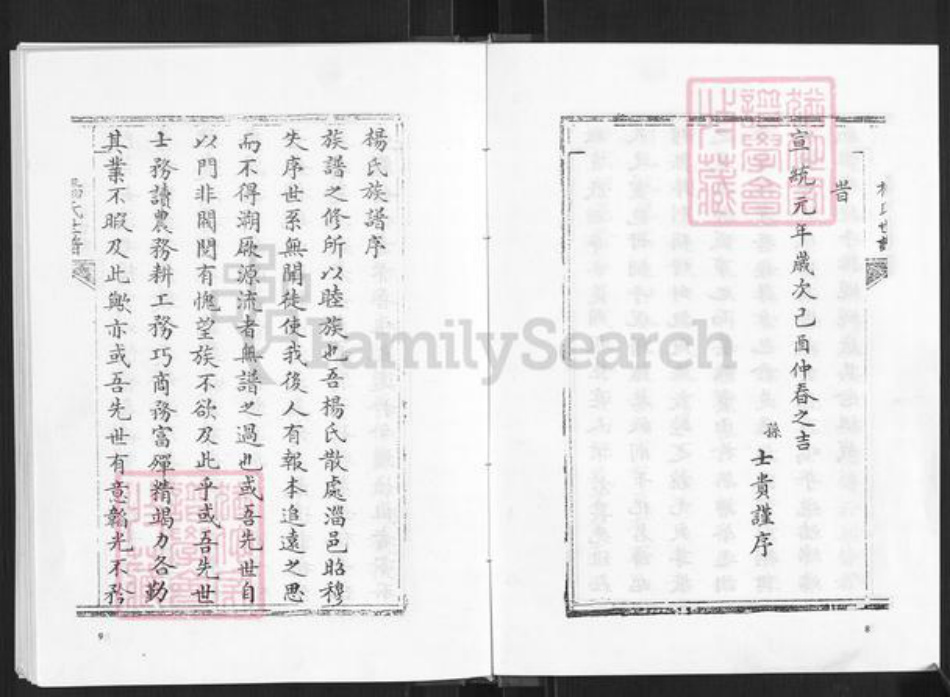 楊氏世譜
旹
宣統元年歲次己酉仲春之吉
孫
士貴謹序
8
楊氏族譜序
族譜之修所以睦族也吾楊氏散處淄邑昭穆
失序世系無聞徒使我後人有報本追遠之思
而不得溯厥源流者無譜之過也或吾先世自
以門非閥閱有愧望族不欲及此乎或吾先世
士務讀農務耕工務巧商務富殫精竭力各勤
其業不暇及此歟亦或吾先世有意韜光不矜
楊氏世譜
9
FamilySearch